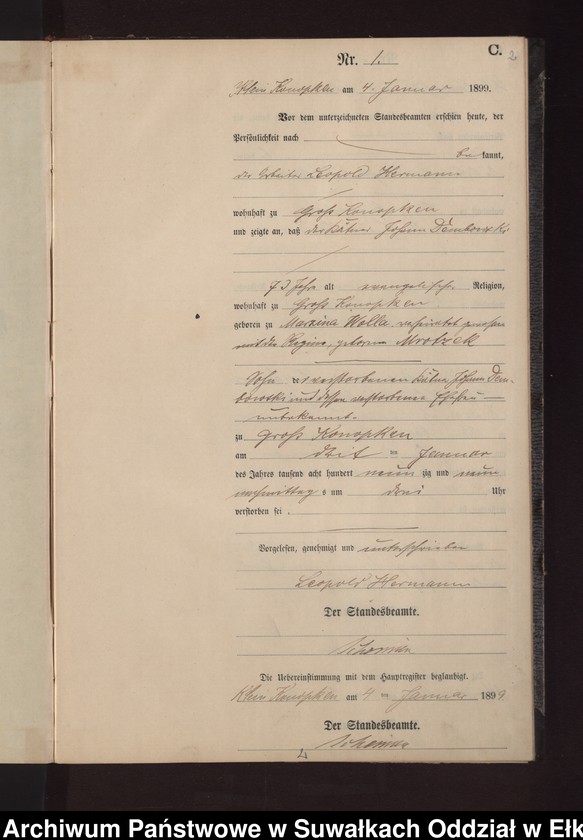 C. 2
Nr. 1.
Klein Konopken am 4. Januar 1899.
Vor dem unterzeichneten Standesbeamten erschien heute, der
Persönlichkeit nach
bekannt,
der Arbeiter Leopold Hermann
wohnhaft zu Groß Konopken
und zeigte an, daß der Kätner Johann Dembowski
73 Jahr alt evangelischer Religion,
wohnhaft zu Groß Konopken
geboren zu Wolla verheiratet gewesen
mit der Regine, geborene Mrotzek
Sohn des verstorbenen Kätner Johann Dem-
borotski und dessen verstorbenen Ehefrau
unbekannt.
zu Groß Konopken
am Januar
des Jahres tausend acht hundert neun zig und neun
nachmittag s um drei Uhr
verstorben sei .
Vorgelesen, genehmigt und unterschrieben
Leopold Hermann
Der Standesbeamte.
Die Uebereinstimmung mit dem Hauptregister beglaubigt.
Klein Konopken am 4 ten Januar 1899
Der Standesbeamte.
Archiwum Państwowe w Suwałkach Oddział w Ełk